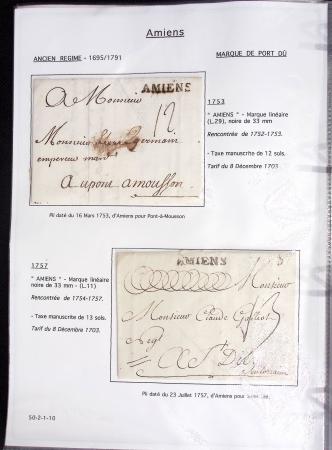 Amiens
ANCIEN REGIME - 1695/1791
MARQUE DE PORT DÛ
AMIENS
A Monsieur
12
Monsieur
empereur
a upont amousson
1753
" AMIENS " - Marque linéaire
(L.29), noire de 33 mm
Rencontrée de 1752-1753.
- Taxe manuscrite de 12 sols.
Tarif du 8 Décembre 1703
Pli daté du 16 Mars 1753, d'Amiens pour Pont-à-Mousson
1757
" AMIENS " - Marque linéaire
noire de 33 mm - (L.11)
Rencontrée de 1754-1757.
- Taxe manuscrite de 13 sols.
Tarif du 8 Décembre 1703.
AMIENS
Monsieur
Monsieur Claude
Negt
A St Dié
Pli daté du 23 Juillet 1757, d'Amiens pour
50-2-1-10